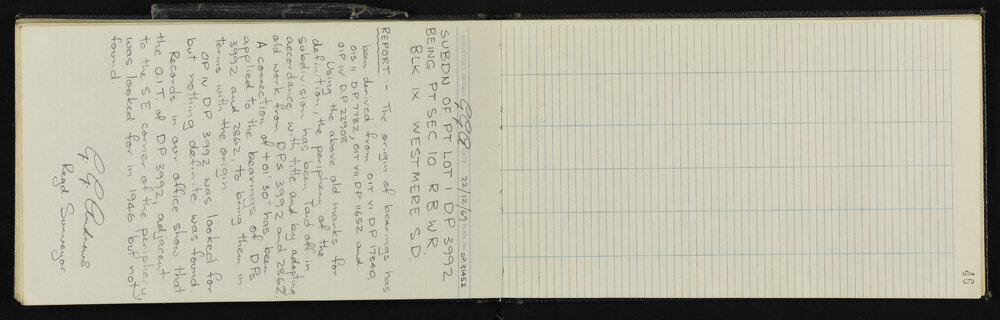 SURVEYOR'S INITIALS GGA DATE 22/12/69 PLAN No. DP 31452
SUBDN OF PT LOT 1 DP 3992
BEING PT SEC 10 R B WR.
BLK IX WESTMERE S.D.
REPORT - The origin of bearings has
been derived from OIT VI DP 17340,
OIS II D.P 7782, OIT VII DP 11652 and
OIP IV D.P 22908
Using the above old marks for
definition, the periphery of the
subdivision has been laid off in
accordance with title and by adopting
old work from DPs 3992 and 2862.
A connection of +01' 30" has been
applied to the bearings of DPs
3992 and 2862, to bring them in
terms with the origin.
OP IV DP 3992 was looked for
but nothing definite was found
Records in our office show that
the O.I.T. of DP 3992, adjacent
to the S.E corner of the periphery,
was looked for in 1946 but not
found.
G. G. Andrews
Regd Surveyor.
46